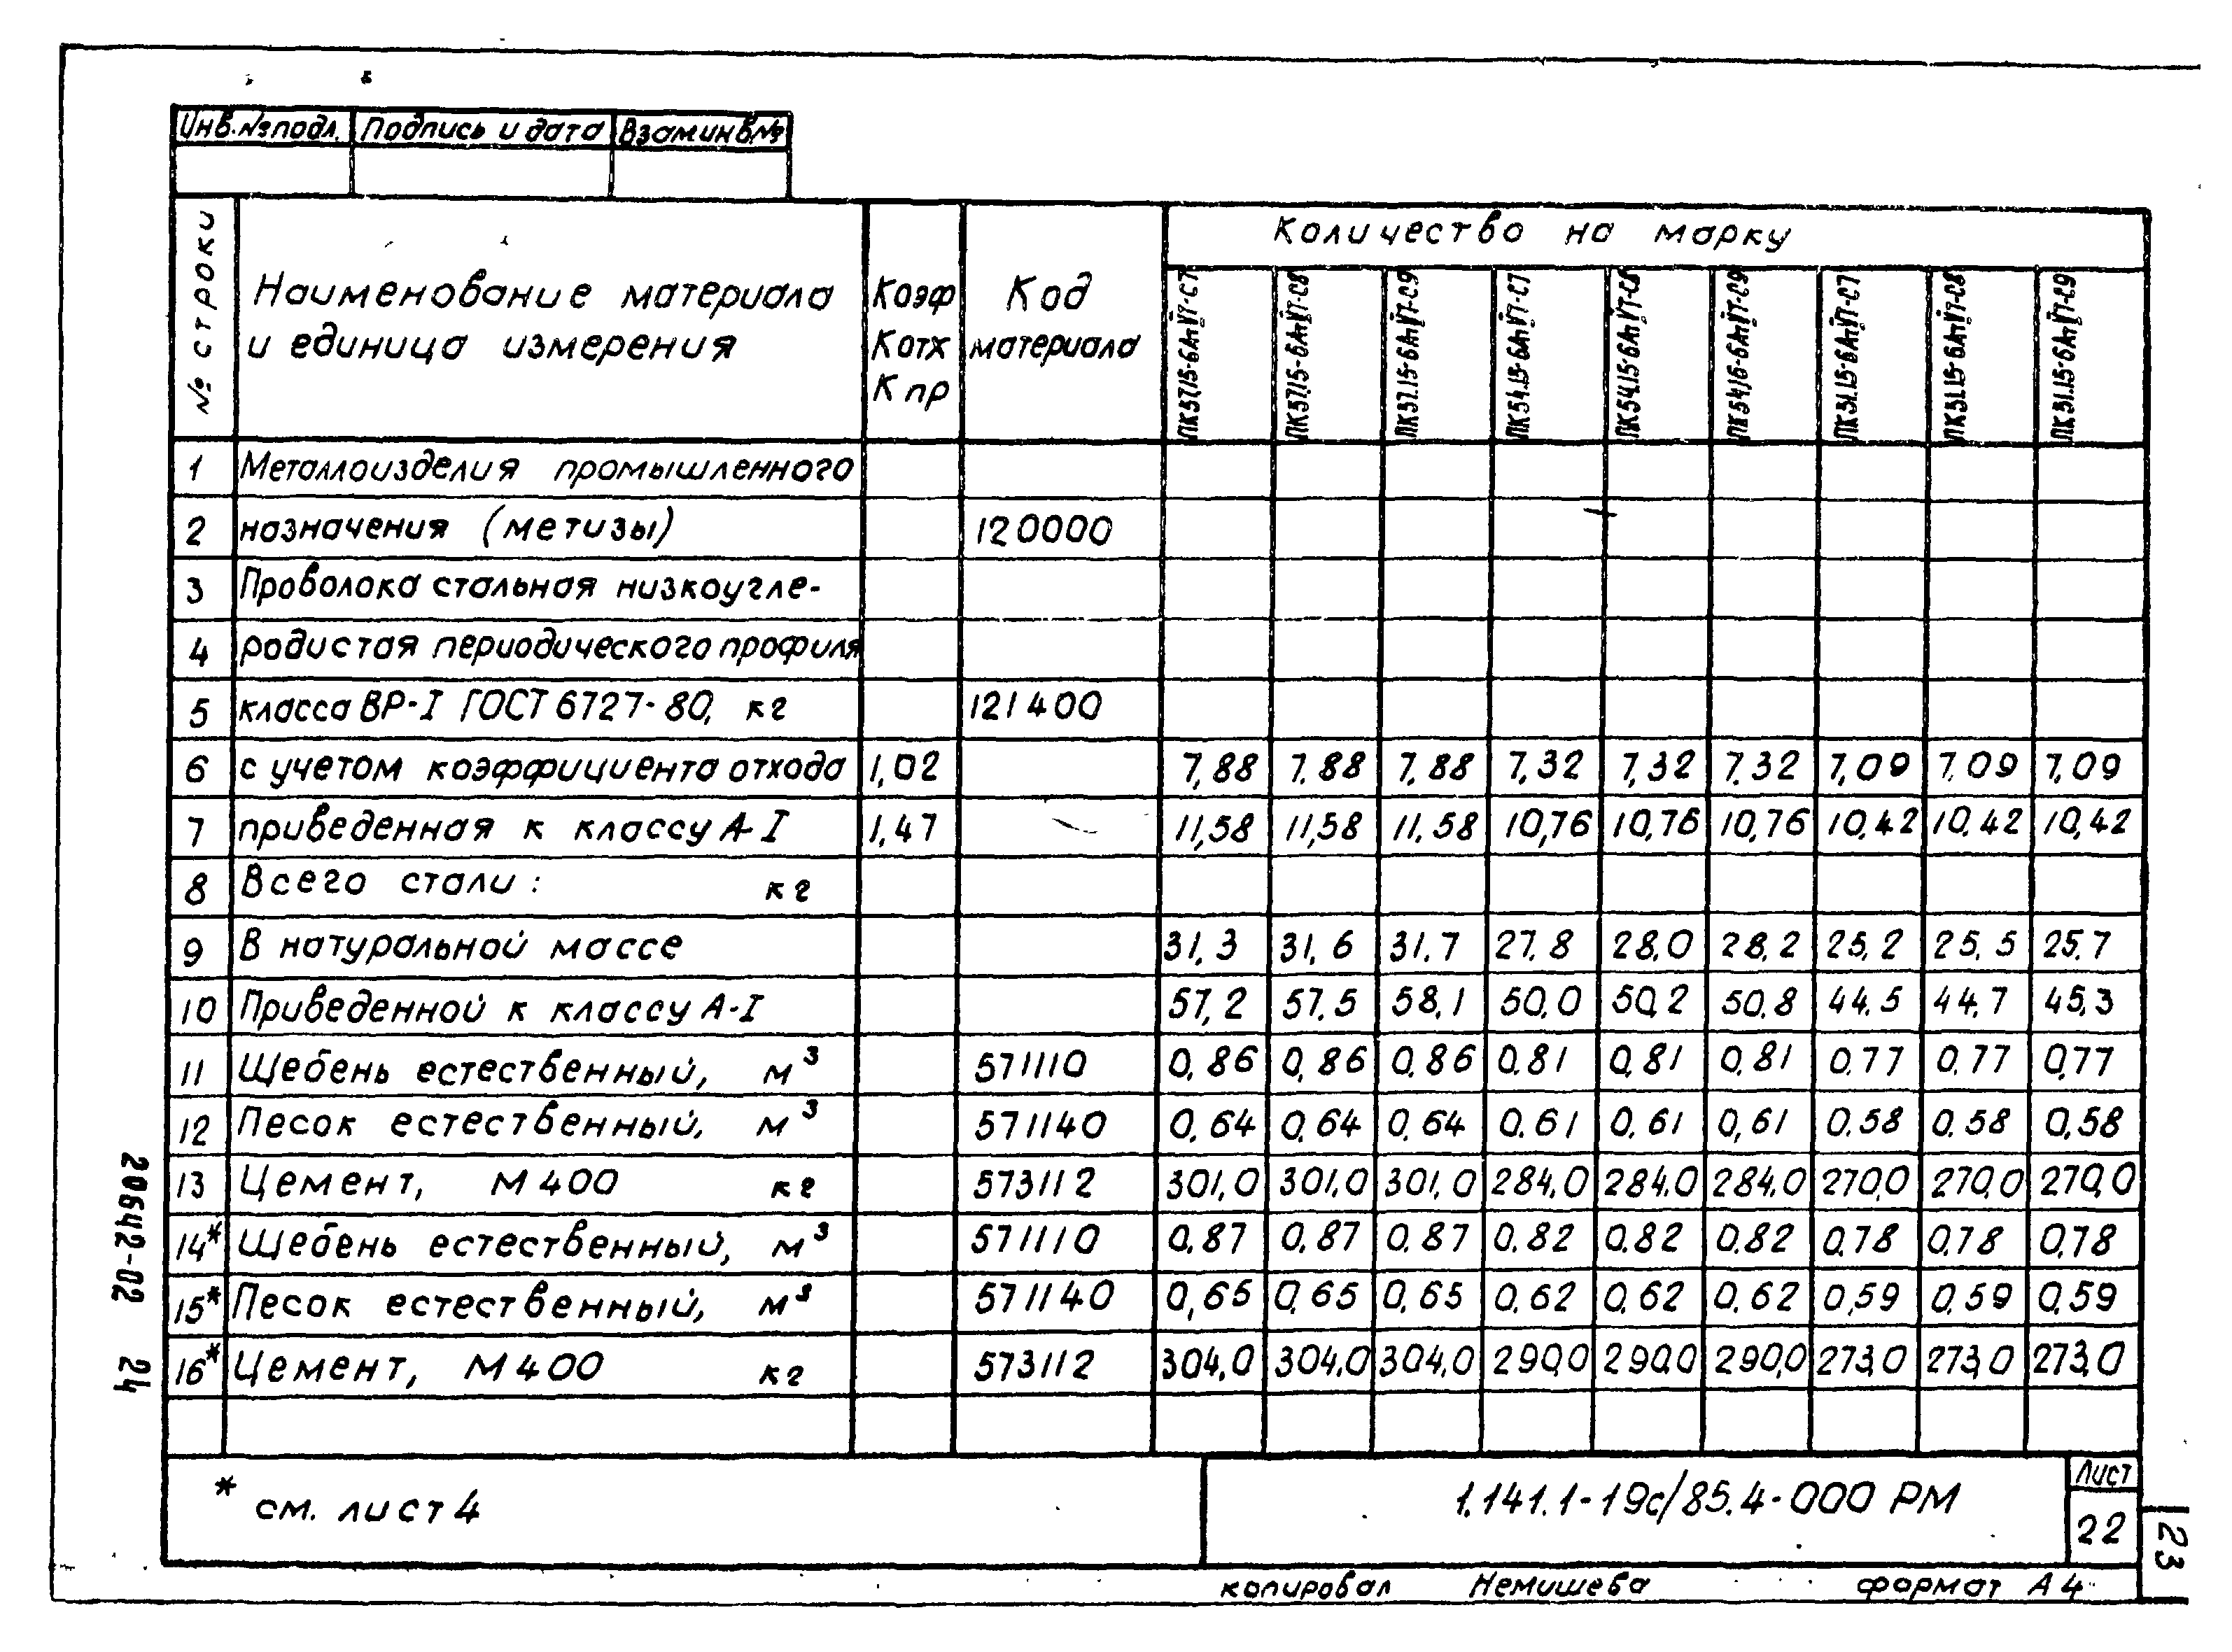 Инв.№подл. Подпись и дата Взам инв.№
№ строки Наименование материала и единица измерения Коэф Котх Кпр Код материала Количество на марку
ПК57.15-6АтVТ-С7 ПК57.15-6АтVТ-С8 ПК57.15-6АтVТ-С9 ПК54.15-6АтVТ-С7 ПК54.15-6АтVТ-С8 ПК54.15-6АтVТ-С9 ПК51.15-6АтVТ-С7 ПК51.15-6АтVТ-С8 ПК51.15-6АтVТ-С9
1 Металлоизделия промышленного
2 назначения (метизы) 120000
3 Проволока стальная низкоугле-
4 родистая периодического профиля
5 класса ВР-I ГОСТ 6727-80, кг 121400
6 с учетом коэффициента отхода 1,02 7,88 7,88 7,88 7,32 7,32 7,32 7,09 7,09 7,09
7 приведенная к классу А-I 1,47 11,58 11,58 11,58 10,76 10,76 10,76 10,42 10,42 10,42
8 Всего стали: кг
9 В натуральной массе 31,3 31,6 31,7 27,8 28,0 28,2 25,2 25,5 25,7
10 Приведенной к классу А-I 57,2 57,5 58,1 50,0 50,2 50,8 44,5 44,7 45,3
11 Щебень естественный, м³ 571110 0,86 0,86 0,86 0,81 0,81 0,81 0,77 0,77 0,77
12 Песок естественный, м³ 571140 0,64 0,64 0,64 0,61 0,61 0,61 0,58 0,58 0,58
13 Цемент, М400 кг 573112 301,0 301,0 301,0 284,0 284,0 284,0 270,0 270,0 270,0
14* Щебень естественный, м³ 571110 0,87 0,87 0,87 0,82 0,82 0,82 0,78 0,78 0,78
15* Песок естественный, м³ 571140 0,65 0,65 0,65 0,62 0,62 0,62 0,59 0,59 0,59
16* Цемент, М400 кг 573112 304,0 304,0 304,0 290,0 290,0 290,0 273,0 273,0 273,0
* см. лист 4
1.141.1-19с/85.4-000 РМ
Лист
22
23
копировал Немишева формат А4
20642-02 24